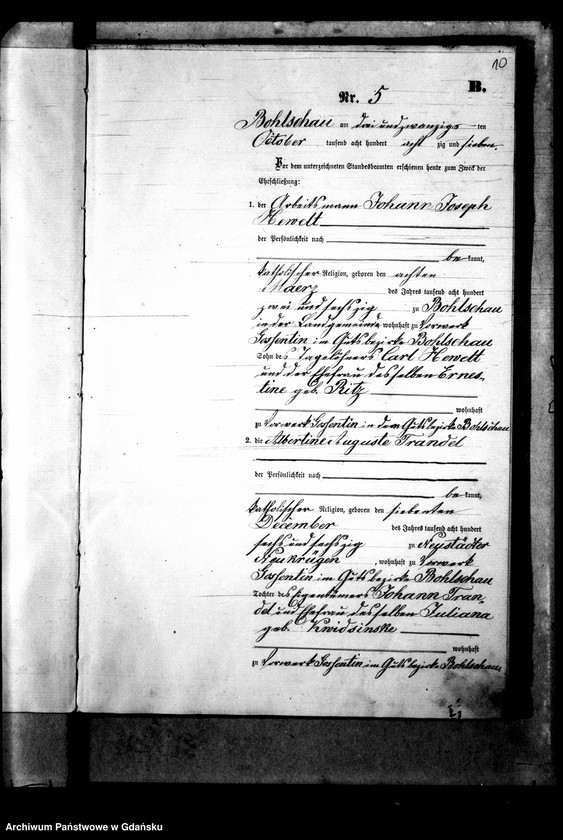 10
B.
Nr. 5
Bohlschau am drei und zwanzigs ten
October tausend acht hundert acht zig und sieben.
Vor dem unterzeichneten Standesbeamten erschienen heute zum Zweck der
Eheschließung:
1. der Arbeitsmann Johann Joseph
Hewelt
der Persönlichkeit nach
be kannt,
katholischer Religion, geboren den achten
Maerz des Jahres tausend acht hundert
zwei und sechszig zu Bohlschau
in der Landgemeinde wohnhaft zu Vorwerk
im Gutsbezirke Bohlschau
Sohn des Tagelöhners Carl Hewelt
und der Ehefrau desselben Ernes-
tine geb. Ritz
wohnhaft
zu Vorwerk in dem Gutsbezirke Bohlschau
2. die Albertine Auguste Trandd
der Persönlichkeit nach
be kannt,
katholischer Religion, geboren den siebenten
December des Jahres tausend acht hundert
sechs und sechszig zu Neustädter
Neukrügen, wohnhaft zu Vorwerk
im Gutsbezirke Bohlschau
Tochter des Eigenthümers Johann Tran-
dd und Ehefrau desselben Juliana
geb. Kwidsinske
wohnhaft
zu Vorwerk im Gutsbezirke Bohlschau
Archiwum Państwowe w Gdańsku